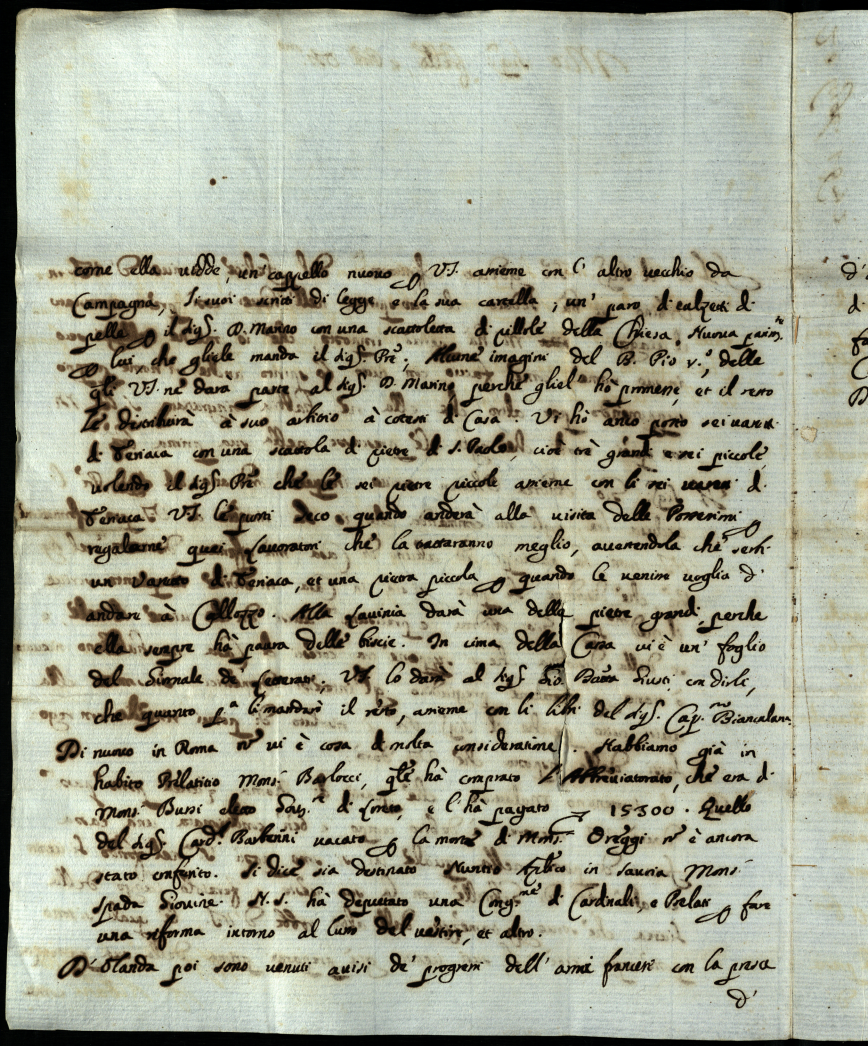 come Ella vedde, un cappello nuovo p VS. assieme con l'altro vecchio da
Campagna, li suoi scritti di legge e la sua cartella; un' paro di calzetti di
pelle p il sig.r D. Marino con una scattoletta di pillole della Chiesa Nuova parim.te
p lui, che gliele manda il sig.r Pre; Alcune imagini del B. Pio V.o, delle
qli VS. ne darà parte al sig.r D. Marino, perche gliel' hò promesse, et il resto
le distribuirà à suo arbitrio à cotesti di Casa. Vi hò anco posto sei vasetti
di Teriaca con una scattola di pietre di S. Paolo, cioè trè grandi e sei piccole,
volendo il sig.r Pre che le sei pietre piccole assieme con li sei vasetti di
Teriaca VS. le porti seco quando anderà alla visita delle Possessioni p
regalarne quei Lavoratori che la trattaranno meglio, avertendola che serbi
un vasetto di Teriaca, et una pietra piccola p quando le venisse voglia d'
andare à Collozzo. Alla Lavinia darà una delle pietre grandi, perche
ella sempre hà paura delle biscie. In cima della Cassa vi è un' foglio
del Giornale de Letterati; VS. lo darà al sig.r Gio. Batta Giusti, con dirli,
che quanto p.a li mandarò il resto, assieme con li libri del sig.r Cap.no Biancalana.
Di nuovo in Roma n vi è cosa di molta consideratione. Habbiamo già in
habito Prelatitio Mons.r Barlocci, qle hà comprato l'Abbreviatorato, che era di
Mons.r Bussi eletto Gov.re di Loreto, e l'hà pagato 15300. Quello
del sig.r Card.l Barberini vacato p la morte di Mons.r Oreggi n è ancora
stato conferito. Si dice sia destinato Nuntio Aplico in Savoia Mons.r
Spada Giovine. N. S. hà deputato una Cong.ne di Cardinali, e Prelati p fare
una riforma intorno al lusso del vestire, et altro.
D'Olanda poi sono venuti avisi de' progressi dell' armi francesi con la presa
d'